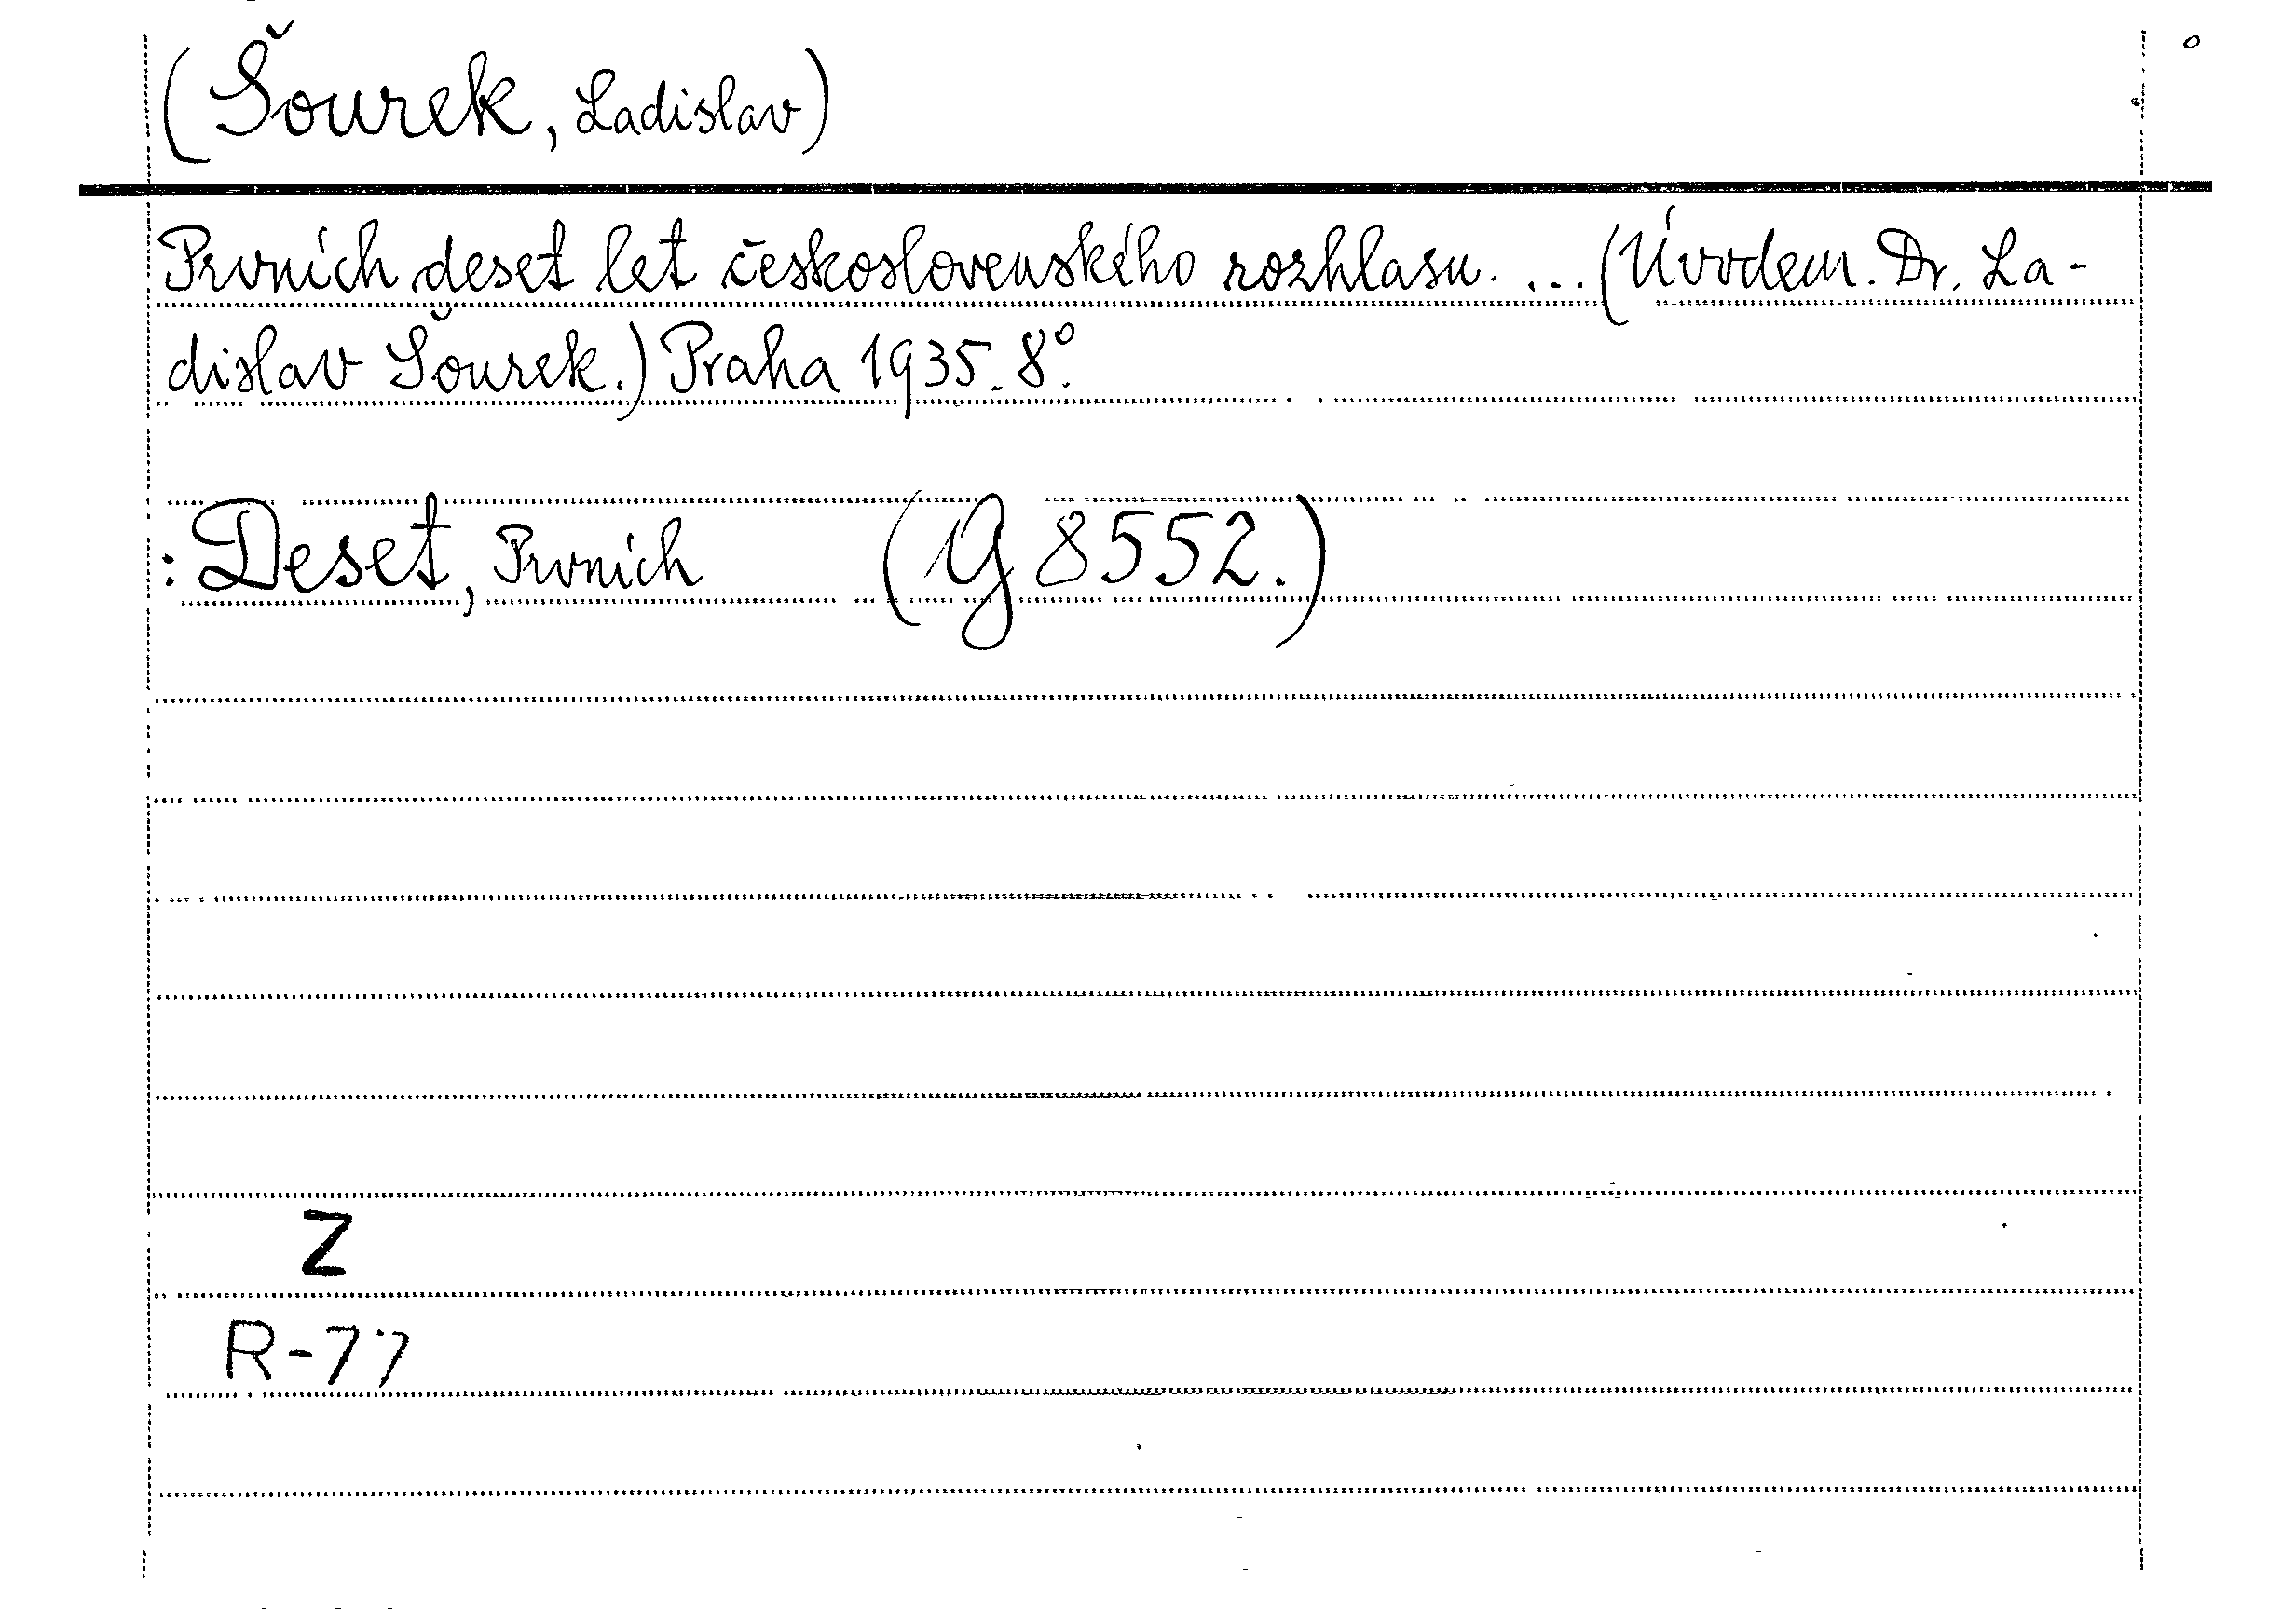 (Šourek, Ladislav)
Prvních deset let československého rozhlasu. ... (Úvodem. Dr. La-
dislav Šourek.) Praha 1935. 8°.
: Deset, Prvních (G 8552.)
Z
R-77